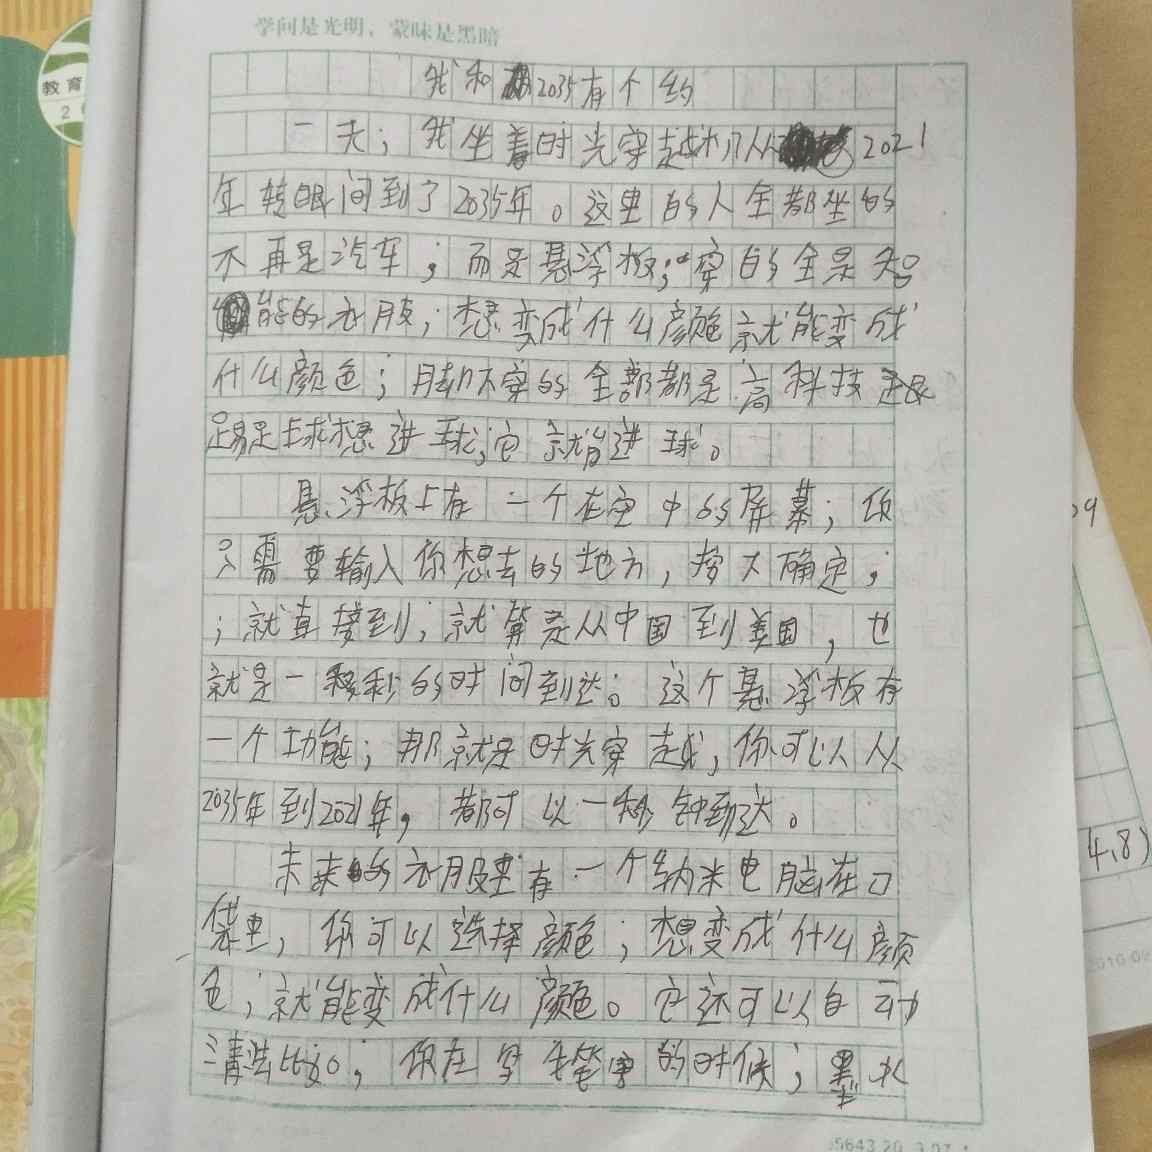 学问是光明，蒙昧是黑暗
教育
我和2035有个约
一天；我坐着时光穿越机从2021
年转眼间到了2035年。这里的人全都坐的
不再是汽车；而是悬浮板；穿的全是智
能的衣服；想变成什么颜色就能变成
什么颜色；脚下穿的全部都是高科技
踢足球想进球，它就能进球。
悬浮板上有一个在空中的屏幕；你
只需要输入你想去的地方，按大确定；
；就直接到；就算是从中国到美国，也
就是一秒的时间到达。这个悬浮板有
一个功能；那就是时光穿越，你可以从
2035年到2021年，都可以一秒钟到达。
未来的衣服里有一个纳米电脑在口
袋里，你可以选择颜色；想变成什么颜
色；就能变成什么颜色。它还可以自动
清洁；你在写毛笔字的时候；墨水
09
4.8)